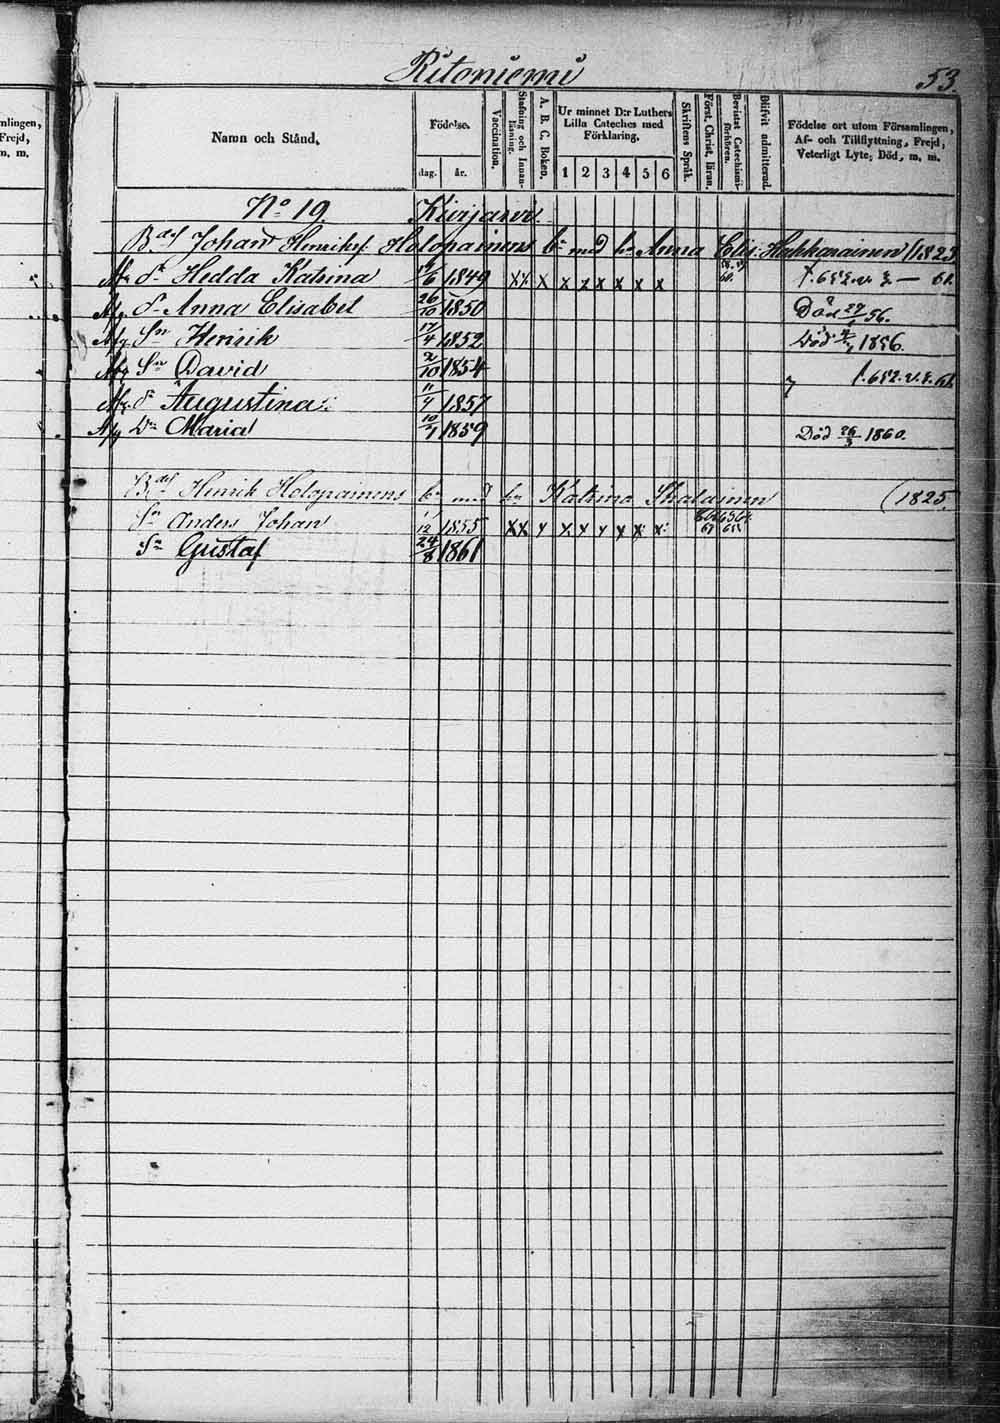 mlingen,
Frejd,
n, m.
Ritoniemi
53.
Namn och Stånd.
Födelse.
dag.
år.
Vaccination.
Stafning och Innan-läsning.
A. B. C. Boken.
Ur minnet D:r Luthers
Lilla Cateches med
Förklaring.
1 2 3 4 5 6
Skriftens Språk.
Först. Christ. läran.
Bevistat Catechismi-förhören.
Blifvit admitterad.
Födelse ort utom Församlingen,
Af- och Tillflyttning, Frejd,
Veterligt Lyte, Död, m. m.
No 19. Kurjanvi
Johan Henriks Holopainens bn med hn Anna Elis: Hakkarainen (1823
Dr Hedda Katrina 6 1849 x x x x x x x x x
Dr Anna Elisabet 26/10 1850 Död 27 56.
Sn Henrik 17/4 1852 Död 1856.
Sn David 2/10 1854
Dr Augustina 11/4 1857
Dr Maria 10/7 1859 Död 26/3 1860.
Henrik Holopainens bn med hn Katrina (1825.
Sn Anders Johan 12 1855 x x x x x x x x x
Sn Gustaf 24/8 1861